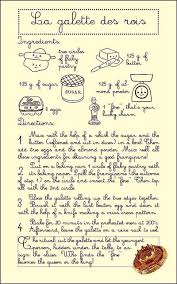 La galette des rois
Ingredients:
two circles
of flaky
pastry
125 g. of
butter.
125 g. of sugar
SUGAR
125 g. of
2 eggs
1 "fève", that's your
lucky charm
Directions:
1 Mix with the help of a whisk the sugar and the
butter (softened and cut in dices) in a bowl. Then
add two eggs and the almond powder. Mix well all
these ingredients for obtaining a good frangipane!
2 Put on a baking pan 1 circle of flaky pastry with
its baking paper. Spill the frangipane (the mixture
of step 1) on the circle and insert the "fève". Then top
all with the 2nd circle.
3 Close the galette rolling up the two edges together.
Brush it with the last beaten egg and draw
with the help of a knife making a criss cross pattern.
4 Bake for 30 minutes in the preheated oven at 200°C.
Afterward, leave the galette on a wire rack to cool.
Cut the galette and let the youngest
person, hidden under the table, to
the slices. Who finds the "fève"
becomes the queen or the king!